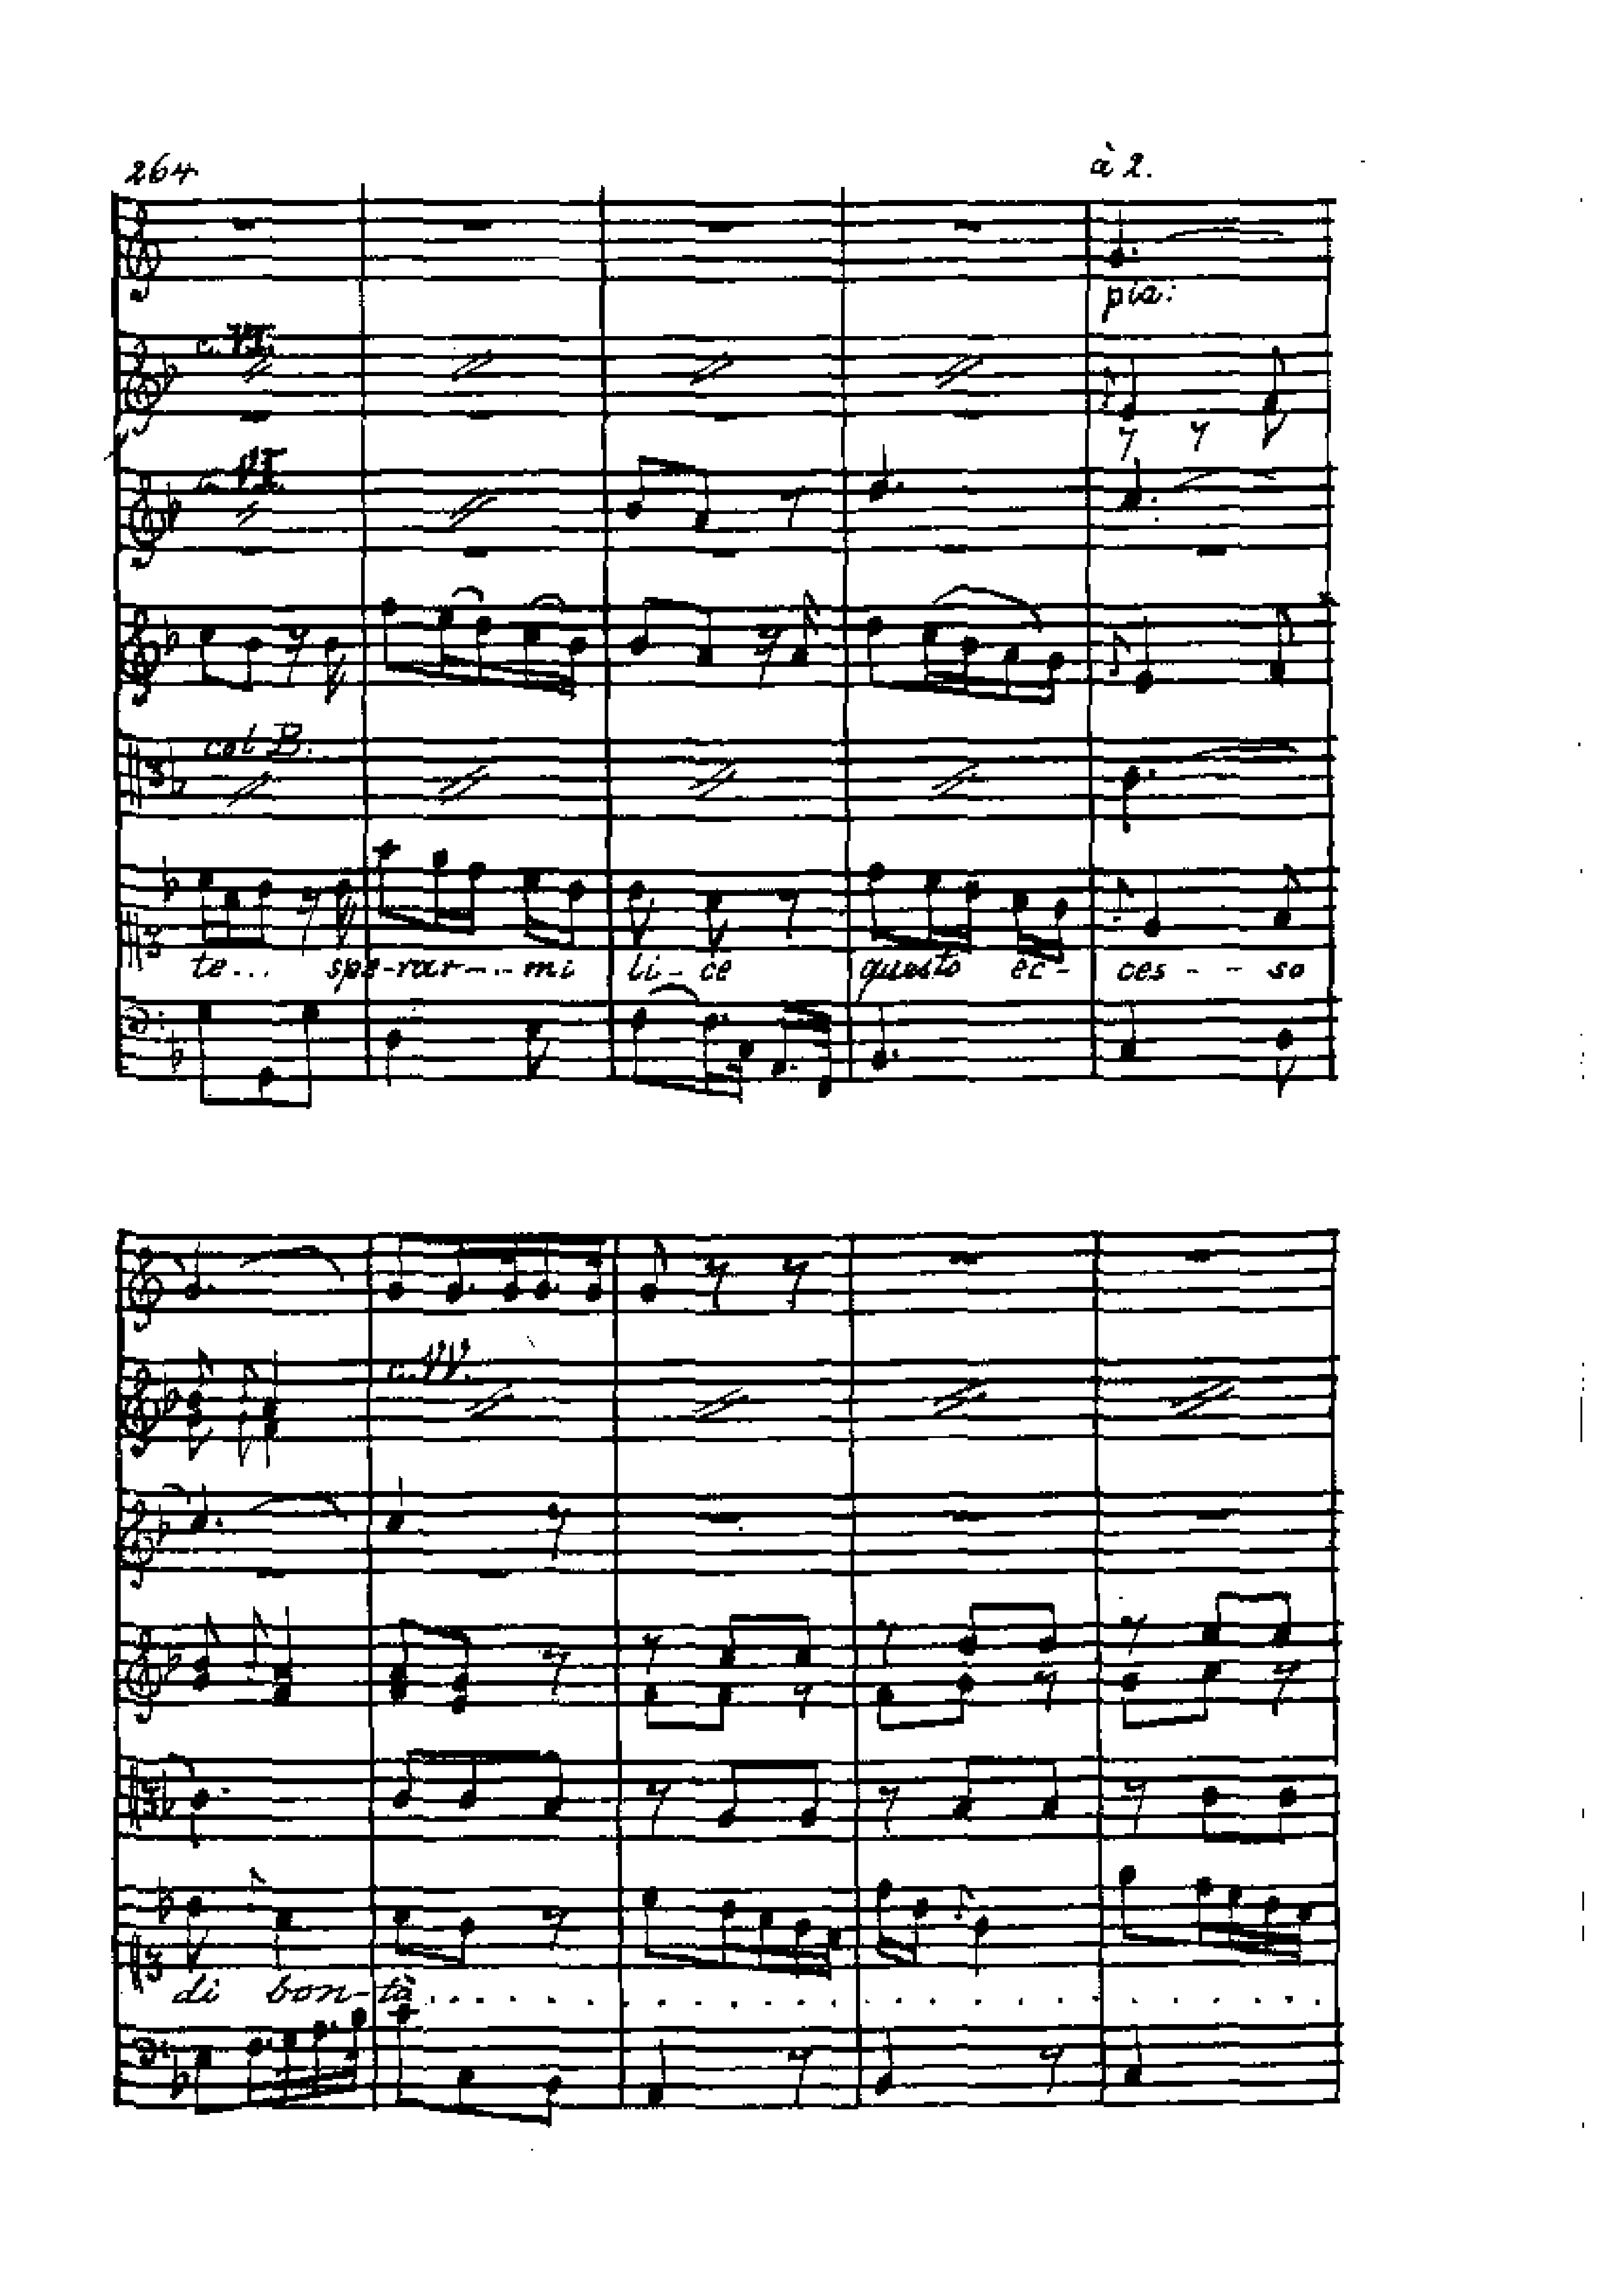 264
à 2.
pia:
col B.
te... spe-rar-..mi li-ce questo ec- ces-- so
di bon-tà